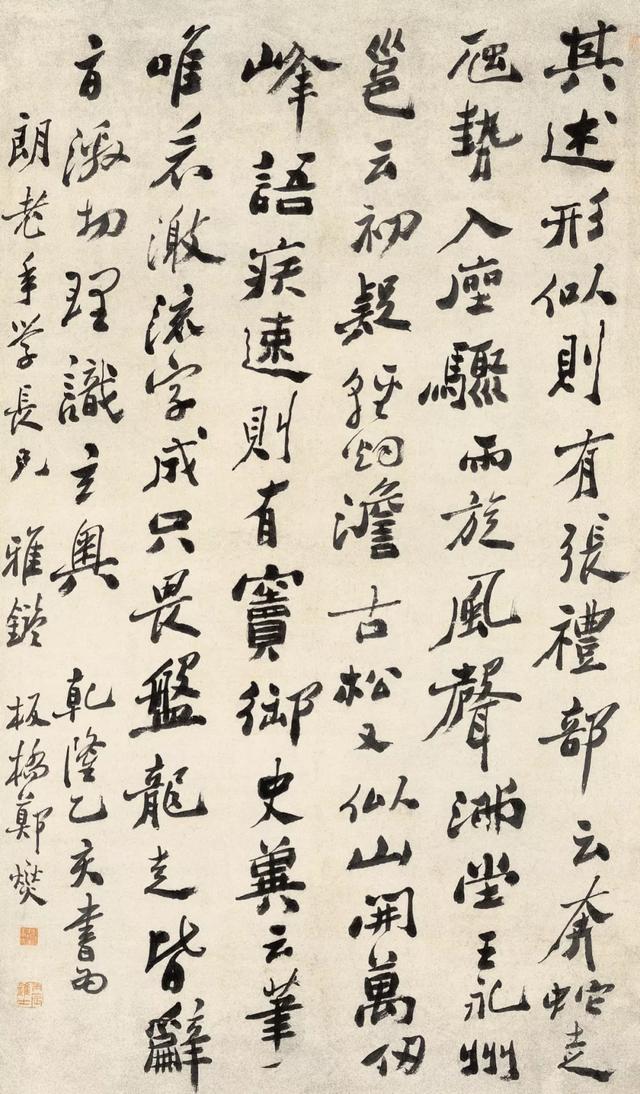 其述形似則有張禮部云奔蛇走
虺勢入座驟雨旋風聲滿堂王永州
邕云初疑輕烟澹古松又似山開萬仞
峰語疾速則有竇御史兾云筆一
唯看激流字成只畏盤龍走皆辭
旨激切理識玄奧 乾隆乙亥書為
朗老年學長兄 雅鑒 板橋鄭燮